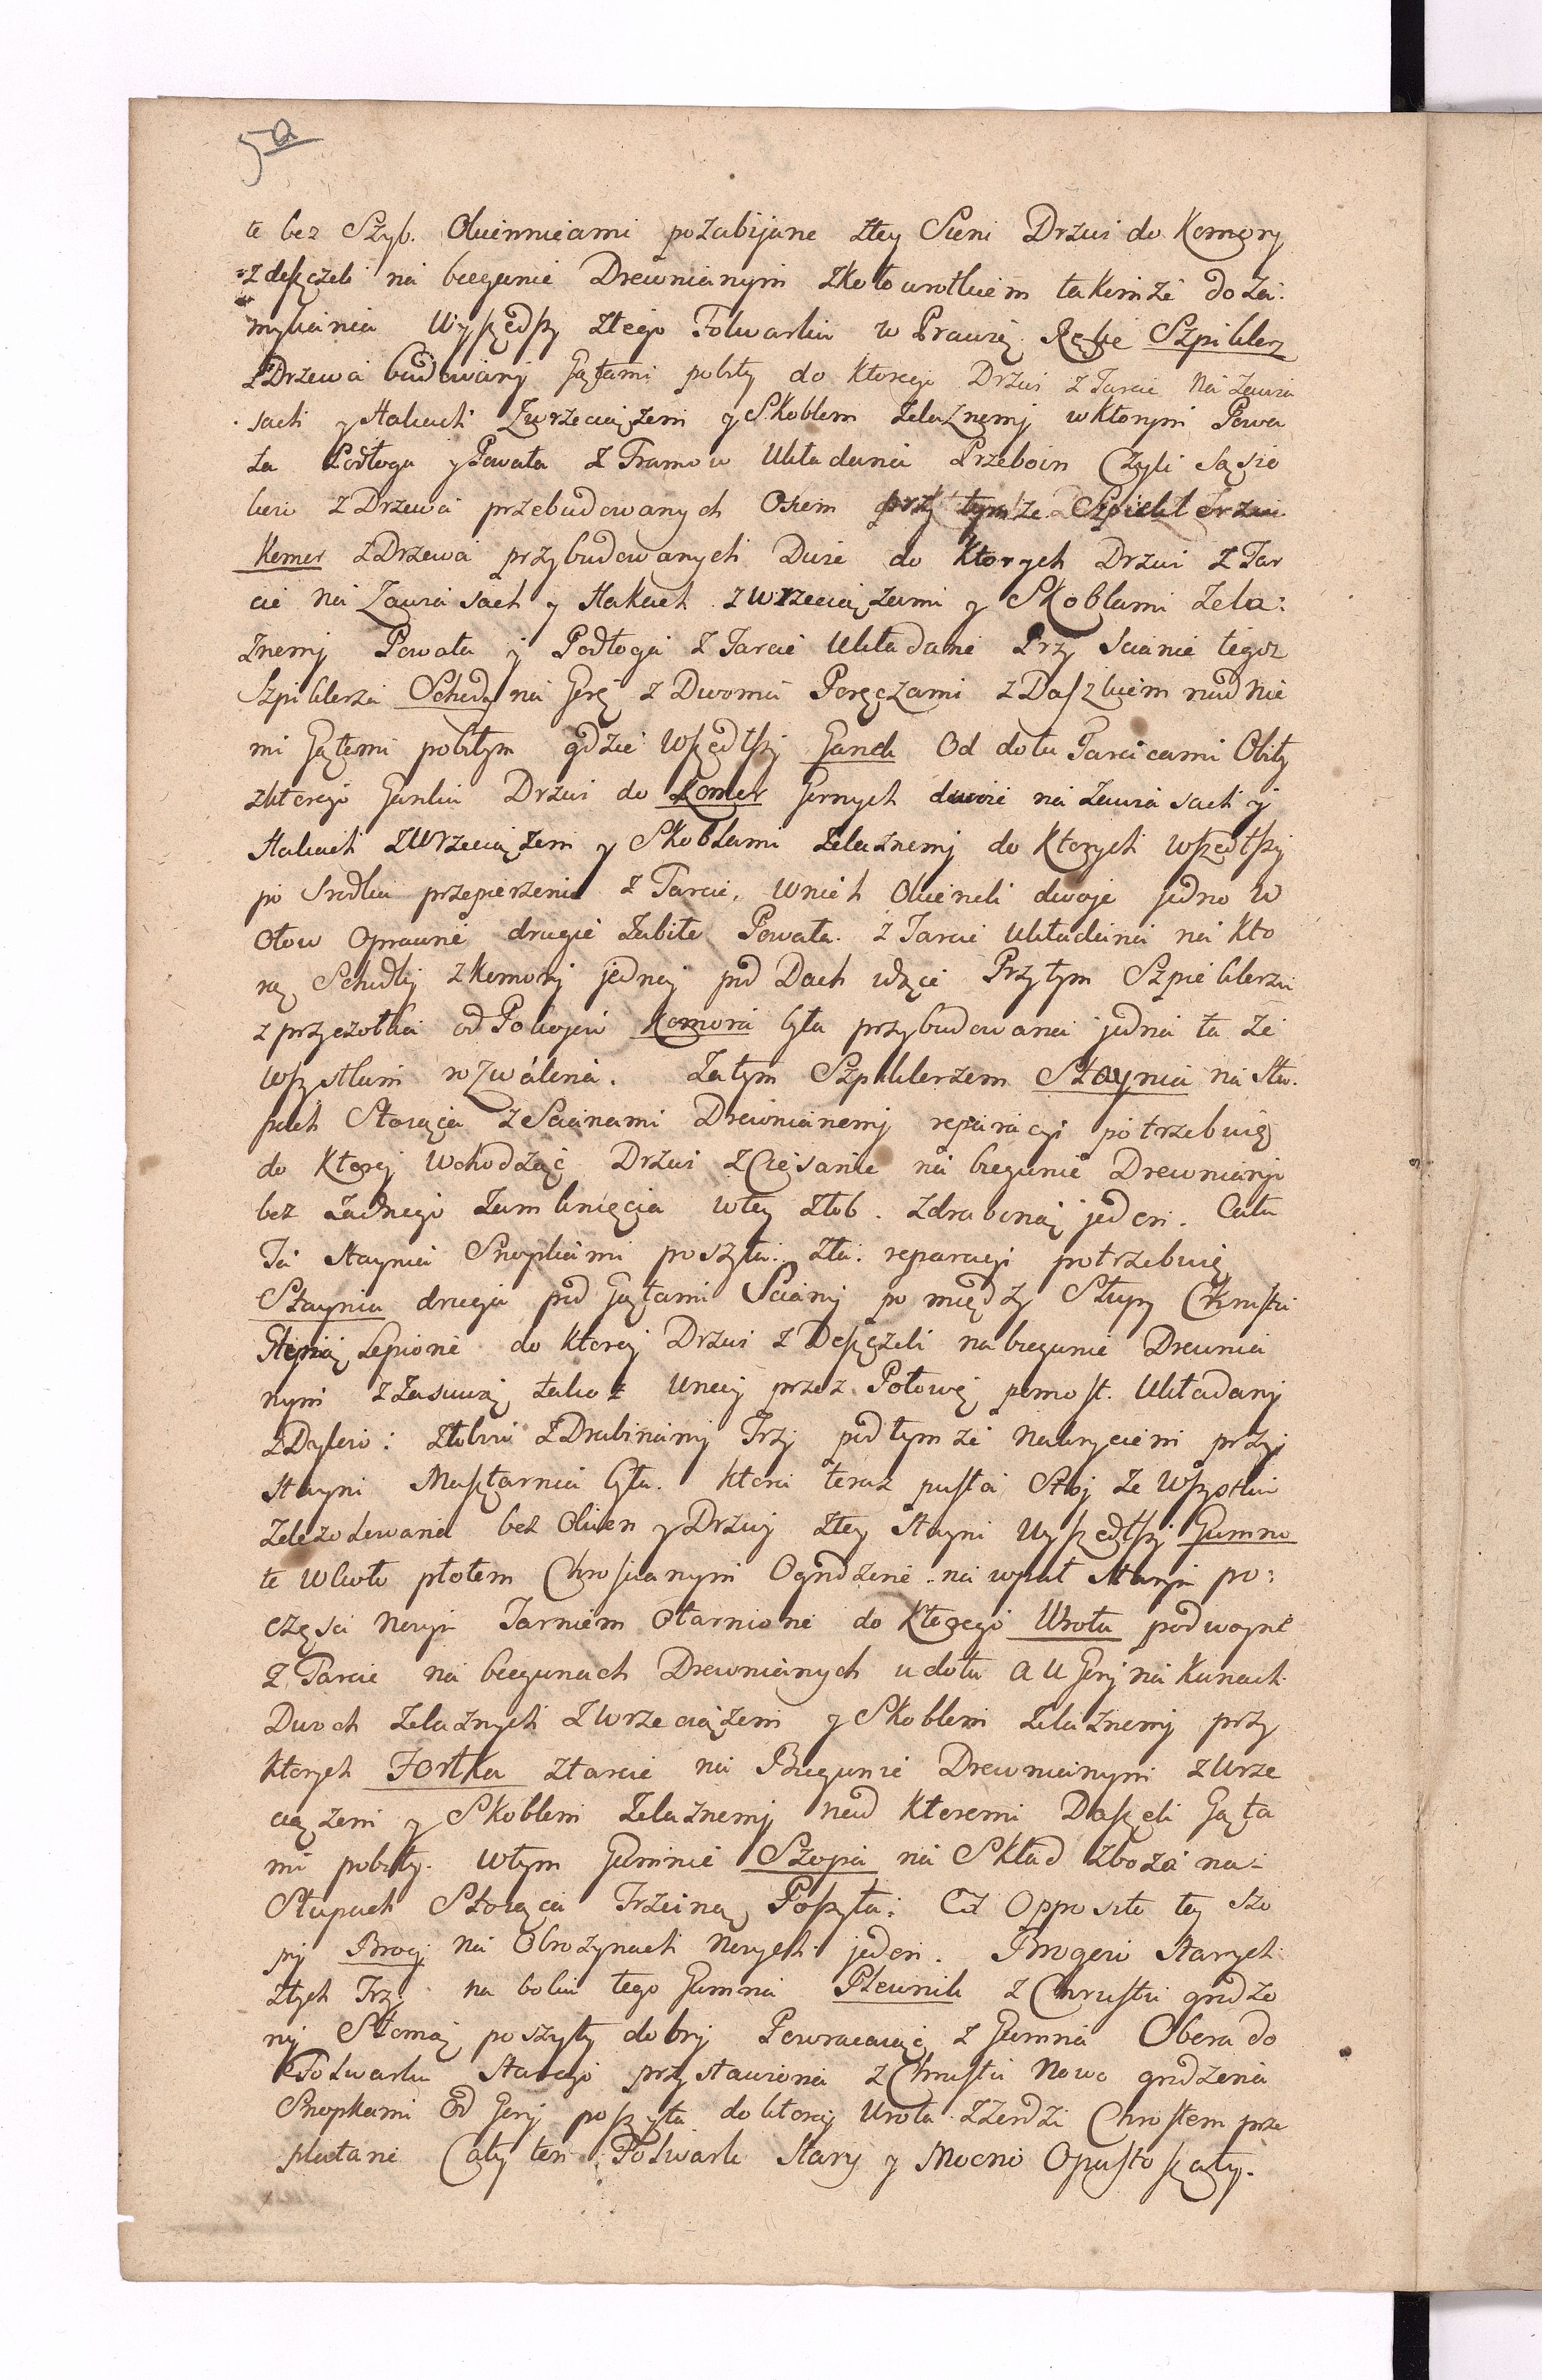 5a
te bez Szyb. Okiennicami pozabijane ztey Sieni Drzwi do Komory
z deszczek na biegunie Drewnianym zkołowrotkiem takimże do za:
mykania Wyszedszy ztego Folwarku w Prawey Ręke Szpiklerz
z Drzewa budowany Gątami pobity do ktorego Drzwi z Tarcic na Zawia
sach y Hakach Zwrzeciążem y Skoblem żelaznemy wktorym Powa
ła Podłoga y Powała z Tramow Układana Przeboin Czyli Sąsie
kow z Drzewa przebudowanych Osiem przy tymże Szpiklerzu
Komor z Drzewa przybudowanych Dwie do ktorych Drzwi z Tar
cic na Zawia sach y Hakach zwrzeciążami y Skoblami żela:
znemy Powała y Podłoga z Tarcic Układane Przy Scianie tegoż
Szpiklerza Schody na Gorę z Dwoma Poręczami z Daszkiem nad nie
mi Gątami pobitym gdzie wszedłszy Ganek Od dołu Tarcicami Obity
zktorego Ganku Drzwi do Komor Gornych dwoie na Zawia sach y
Hakach zwrzeciążem y Skoblami żelaznemy do ktorych wszedłszy
po Srodku przepierzenie z Tarcic, wnich Okienek dwoje jedno w
Ołow Oprawne drugie Zabite Powała z Tarcic Układana na kto
rą Schodky zkomory jedney pod Dach idące Przytym Szpieklerzu
z przyczołka od Pokojow Komora była przybudowana jedna ta ze
wszystkim rozwalena. Zatym Szpiklerzem Staynia na Słu.
pach Stoiąca ze Scianami Drewnianemy reparacyi potrzebuię
do ktorej Wchodząc Drzwi z Ciesanic na biegunie Drewnianym
bez żadnego zamknięcia wtey żłob. zdrabiną jeden. Cała
Ta Staynia Snopkami poszyta zła. reparacyi potrzebuię
Staynia druga pod Gątami Sciany po między Słupy Chrustu
Glyną Lepione do ktorej Drzwi z Deszczek na biegunie Drewnia
nym z Zasuwą takoż Uney przez Połowę pomost. Układany
z Dylow: żłobow z Drabinamy Trzy pod tymże nakryciem przy
Stayni Masztarnia była. ktora teraz pusta Stoj ze wszystkim
bez Okien y Drzwi ztey Stayni wyszedłszy Gumno
te wkoło płotem Chrościanym Ogrodzone na wpuł Starym po:
części Nowym Tarniem Otarnione do ktorego Wrota podwoyne
z Tarcic na biegunach Drewnianych u dołu a u Gory na Kunach
Dwoch żelaznych zwrzeciążem y Skoblem żelaznemy przy
ktorych Fortka ztarcic na Biegunie Drewnianym zwrze
ciążem y Skoblem żelaznemy nad ktoremi Daszek Gąta
mi pobity. wtym Gumnie Szopa na Skład zboża na:
Słupach Stoiąca Trzciną Poszyta: Ex Opposito tey szo
py Brog na Obrożynach Nowych jeden. Brogow Starych
złych Trzy. na boku tego Gumna Plewnik z Chrustu grodzo
ny Słomą poszyty dobry Powracaiąc z Gumna Obora do
Folwarku Starego przystawiona z Chrustu Nowo grodzona
Snopkami Od Gory poszyta do ktorej Wrota zżerdzi Chrostem prze
platane Cały ten Folwark Stary y Mocno Opustoszały.